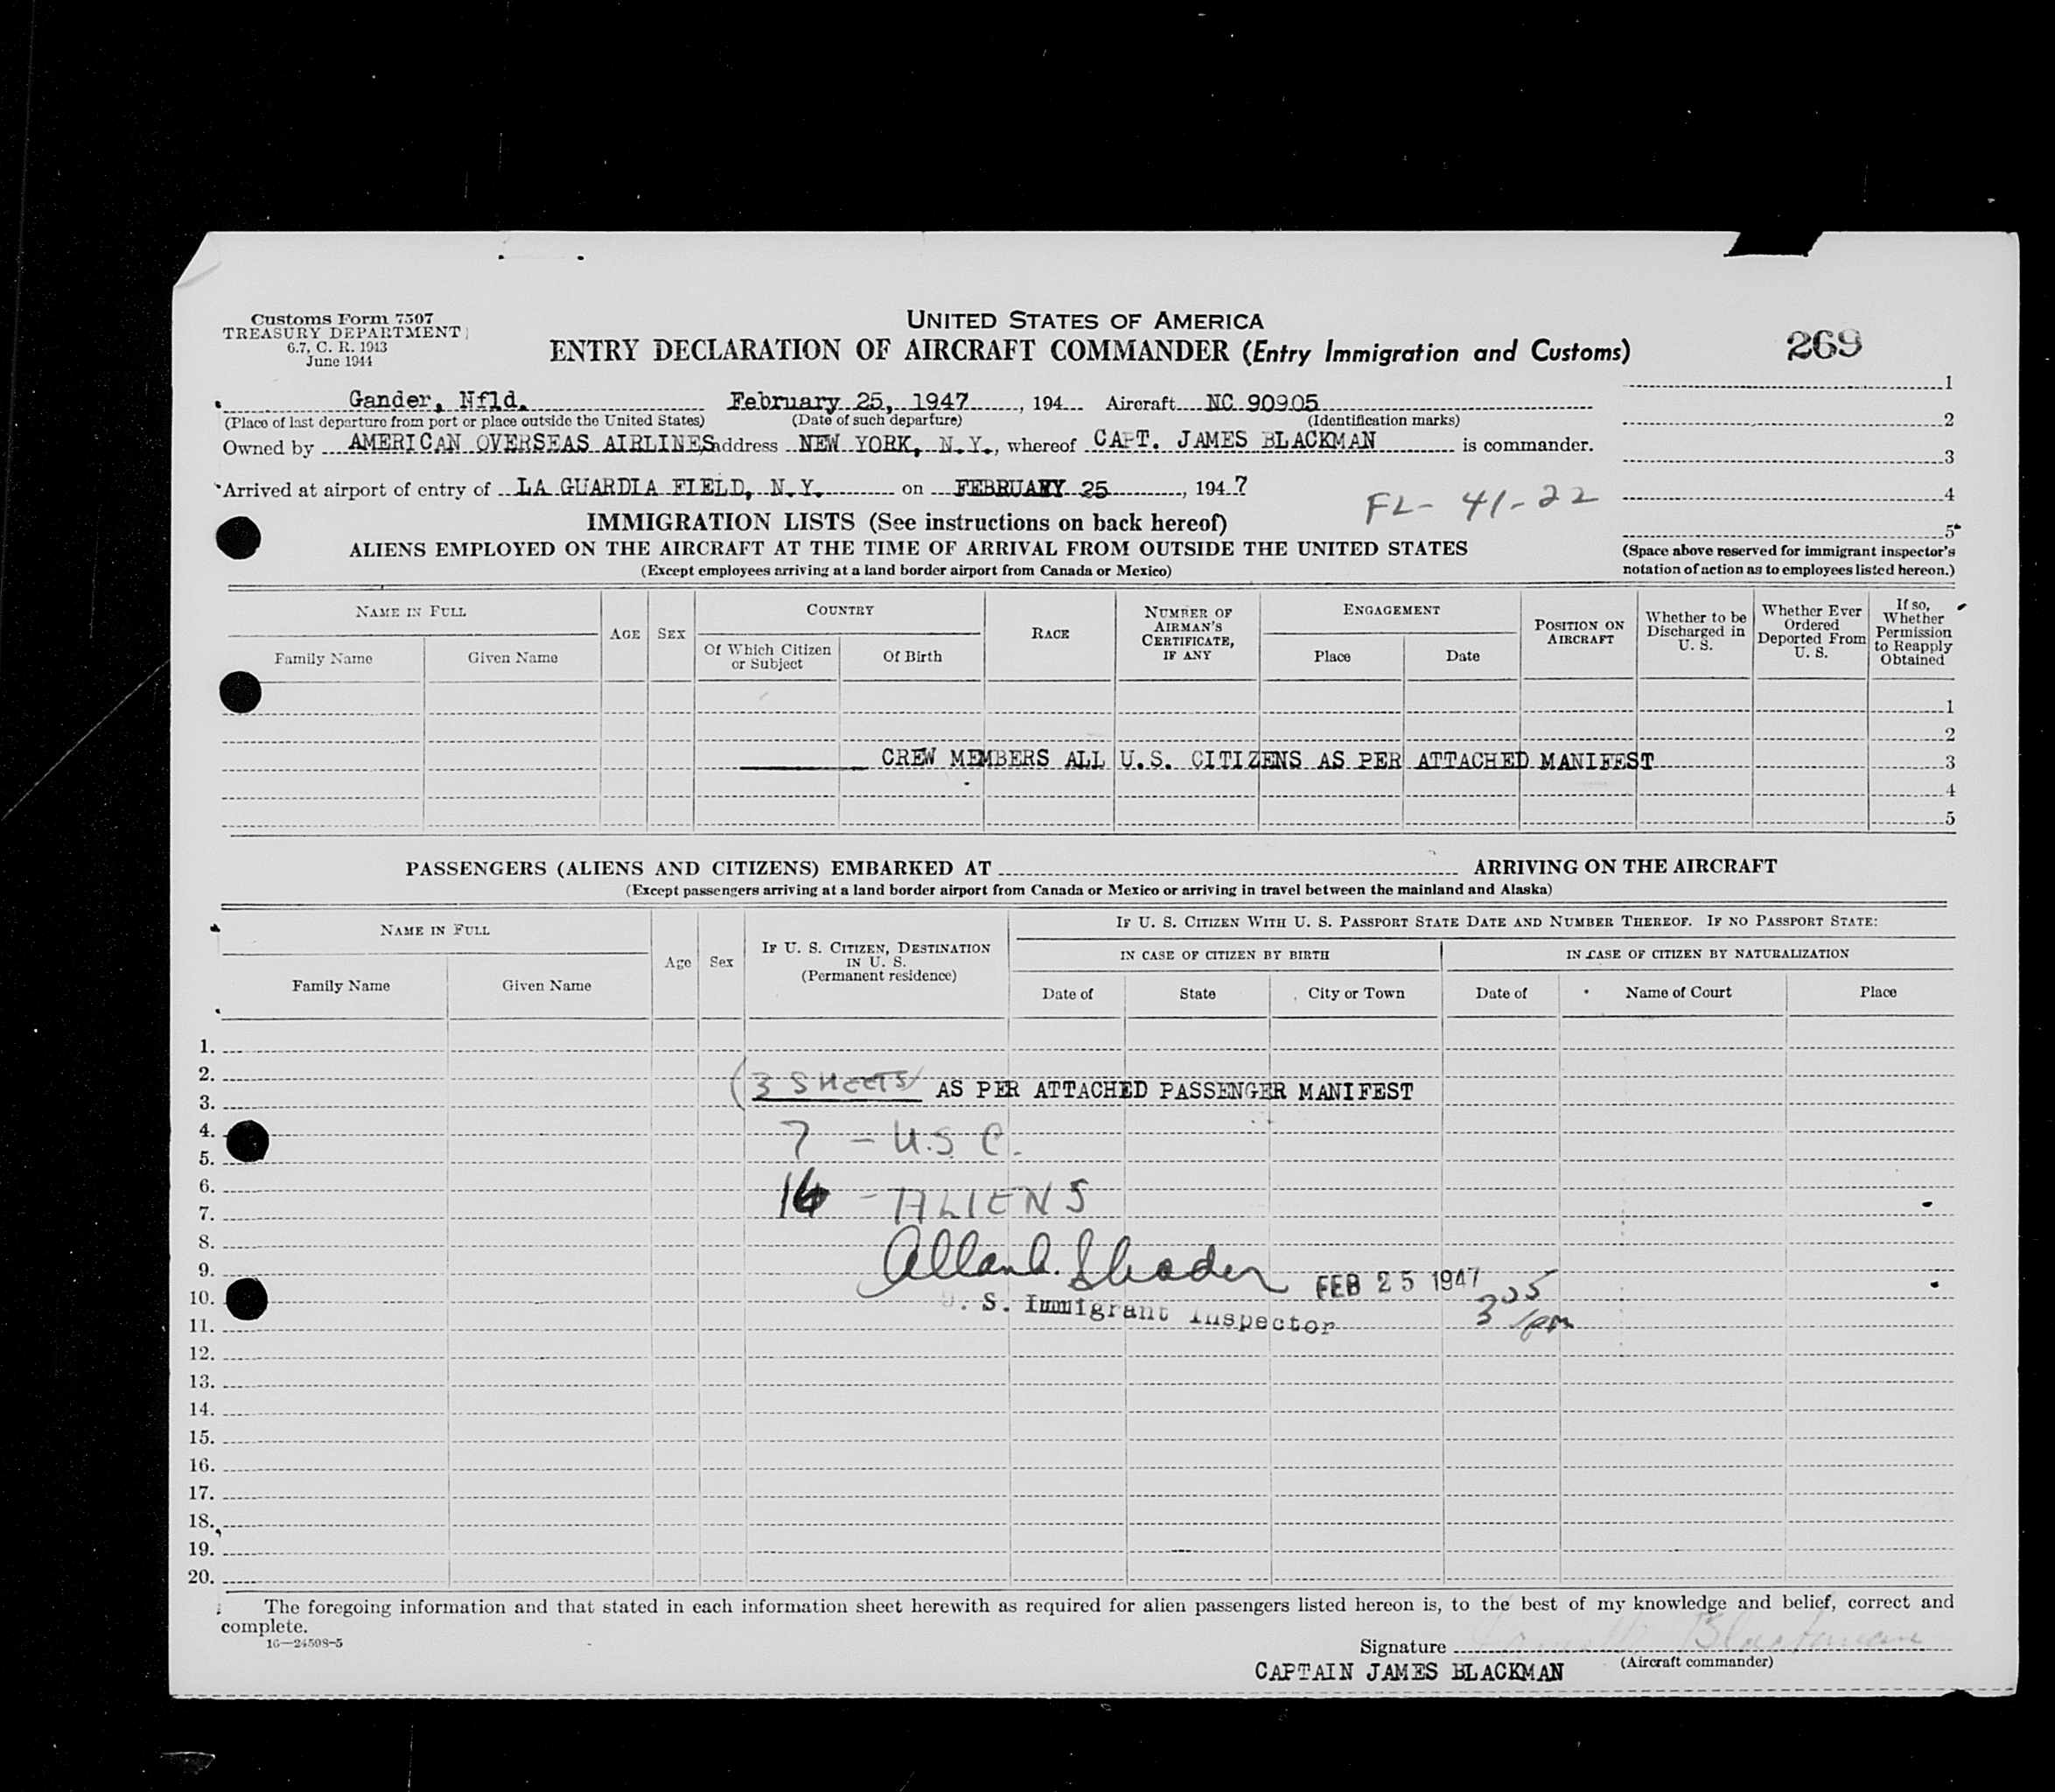 Customs Form 7507
TREASURY DEPARTMENT
6.7, C. R. 1943
June 1944
UNITED STATES OF AMERICA
ENTRY DECLARATION OF AIRCRAFT COMMANDER (Entry Immigration and Customs)
269
Gander, Nfld. February 25, 1947, 194 Aircraft NC 90905
(Place of last departure from port or place outside the United States) (Date of such departure) (Identification marks)
Owned by AMERICAN OVERSEAS AIRLINES, address NEW YORK, N.Y., whereof CAPT. JAMES BLACKMAN is commander.
Arrived at airport of entry of LA GUARDIA FIELD, N.Y. on FEBRUARY 25, 1947
1
2
3
4
5
FL-41-22
(Space above reserved for immigrant inspector's
notation of action as to employees listed hereon.)
IMMIGRATION LISTS (See instructions on back hereof)
ALIENS EMPLOYED ON THE AIRCRAFT AT THE TIME OF ARRIVAL FROM OUTSIDE THE UNITED STATES
(Except employees arriving at a land border airport from Canada or Mexico)
NAME IN FULL
Family Name
Given Name
AGE
SEX
COUNTRY
Of Which Citizen
or Subject
Of Birth
RACE
NUMBER OF
AIRMAN'S
CERTIFICATE,
IF ANY
ENGAGEMENT
Place
Date
POSITION ON
AIRCRAFT
Whether to be
Discharged in
U. S.
Whether Ever
Ordered
Deported From
U. S.
If so,
Whether
Permission
to Reapply
Obtained
1
2
CREW MEMBERS ALL U.S. CITIZENS AS PER ATTACHED MANIFEST 3
4
5
PASSENGERS (ALIENS AND CITIZENS) EMBARKED AT ARRIVING ON THE AIRCRAFT
(Except passengers arriving at a land border airport from Canada or Mexico or arriving in travel between the mainland and Alaska)
NAME IN FULL
Family Name
Given Name
Age
Sex
IF U. S. CITIZEN, DESTINATION
IN U. S.
(Permanent residence)
IF U. S. CITIZEN WITH U. S. PASSPORT STATE DATE AND NUMBER THEREOF. IF NO PASSPORT STATE:
IN CASE OF CITIZEN BY BIRTH
IN CASE OF CITIZEN BY NATURALIZATION
Date of
State
City or Town
Date of
Name of Court
Place
1.
2.
(3 SHEETS) AS PER ATTACHED PASSENGER MANIFEST
3.
4.
7 - U.S.C.
5.
6.
- ALIENS
7.
8.
9.
FEB 25 1947
10.
U. S. Immigrant Inspector
305
pm
11.
12.
13.
14.
15.
16.
17.
18.
19.
20.
The foregoing information and that stated in each information sheet herewith as required for alien passengers listed hereon is, to the best of my knowledge and belief, correct and
complete.
16—24598-5
Signature
(Aircraft commander)
CAPTAIN JAMES BLACKMAN